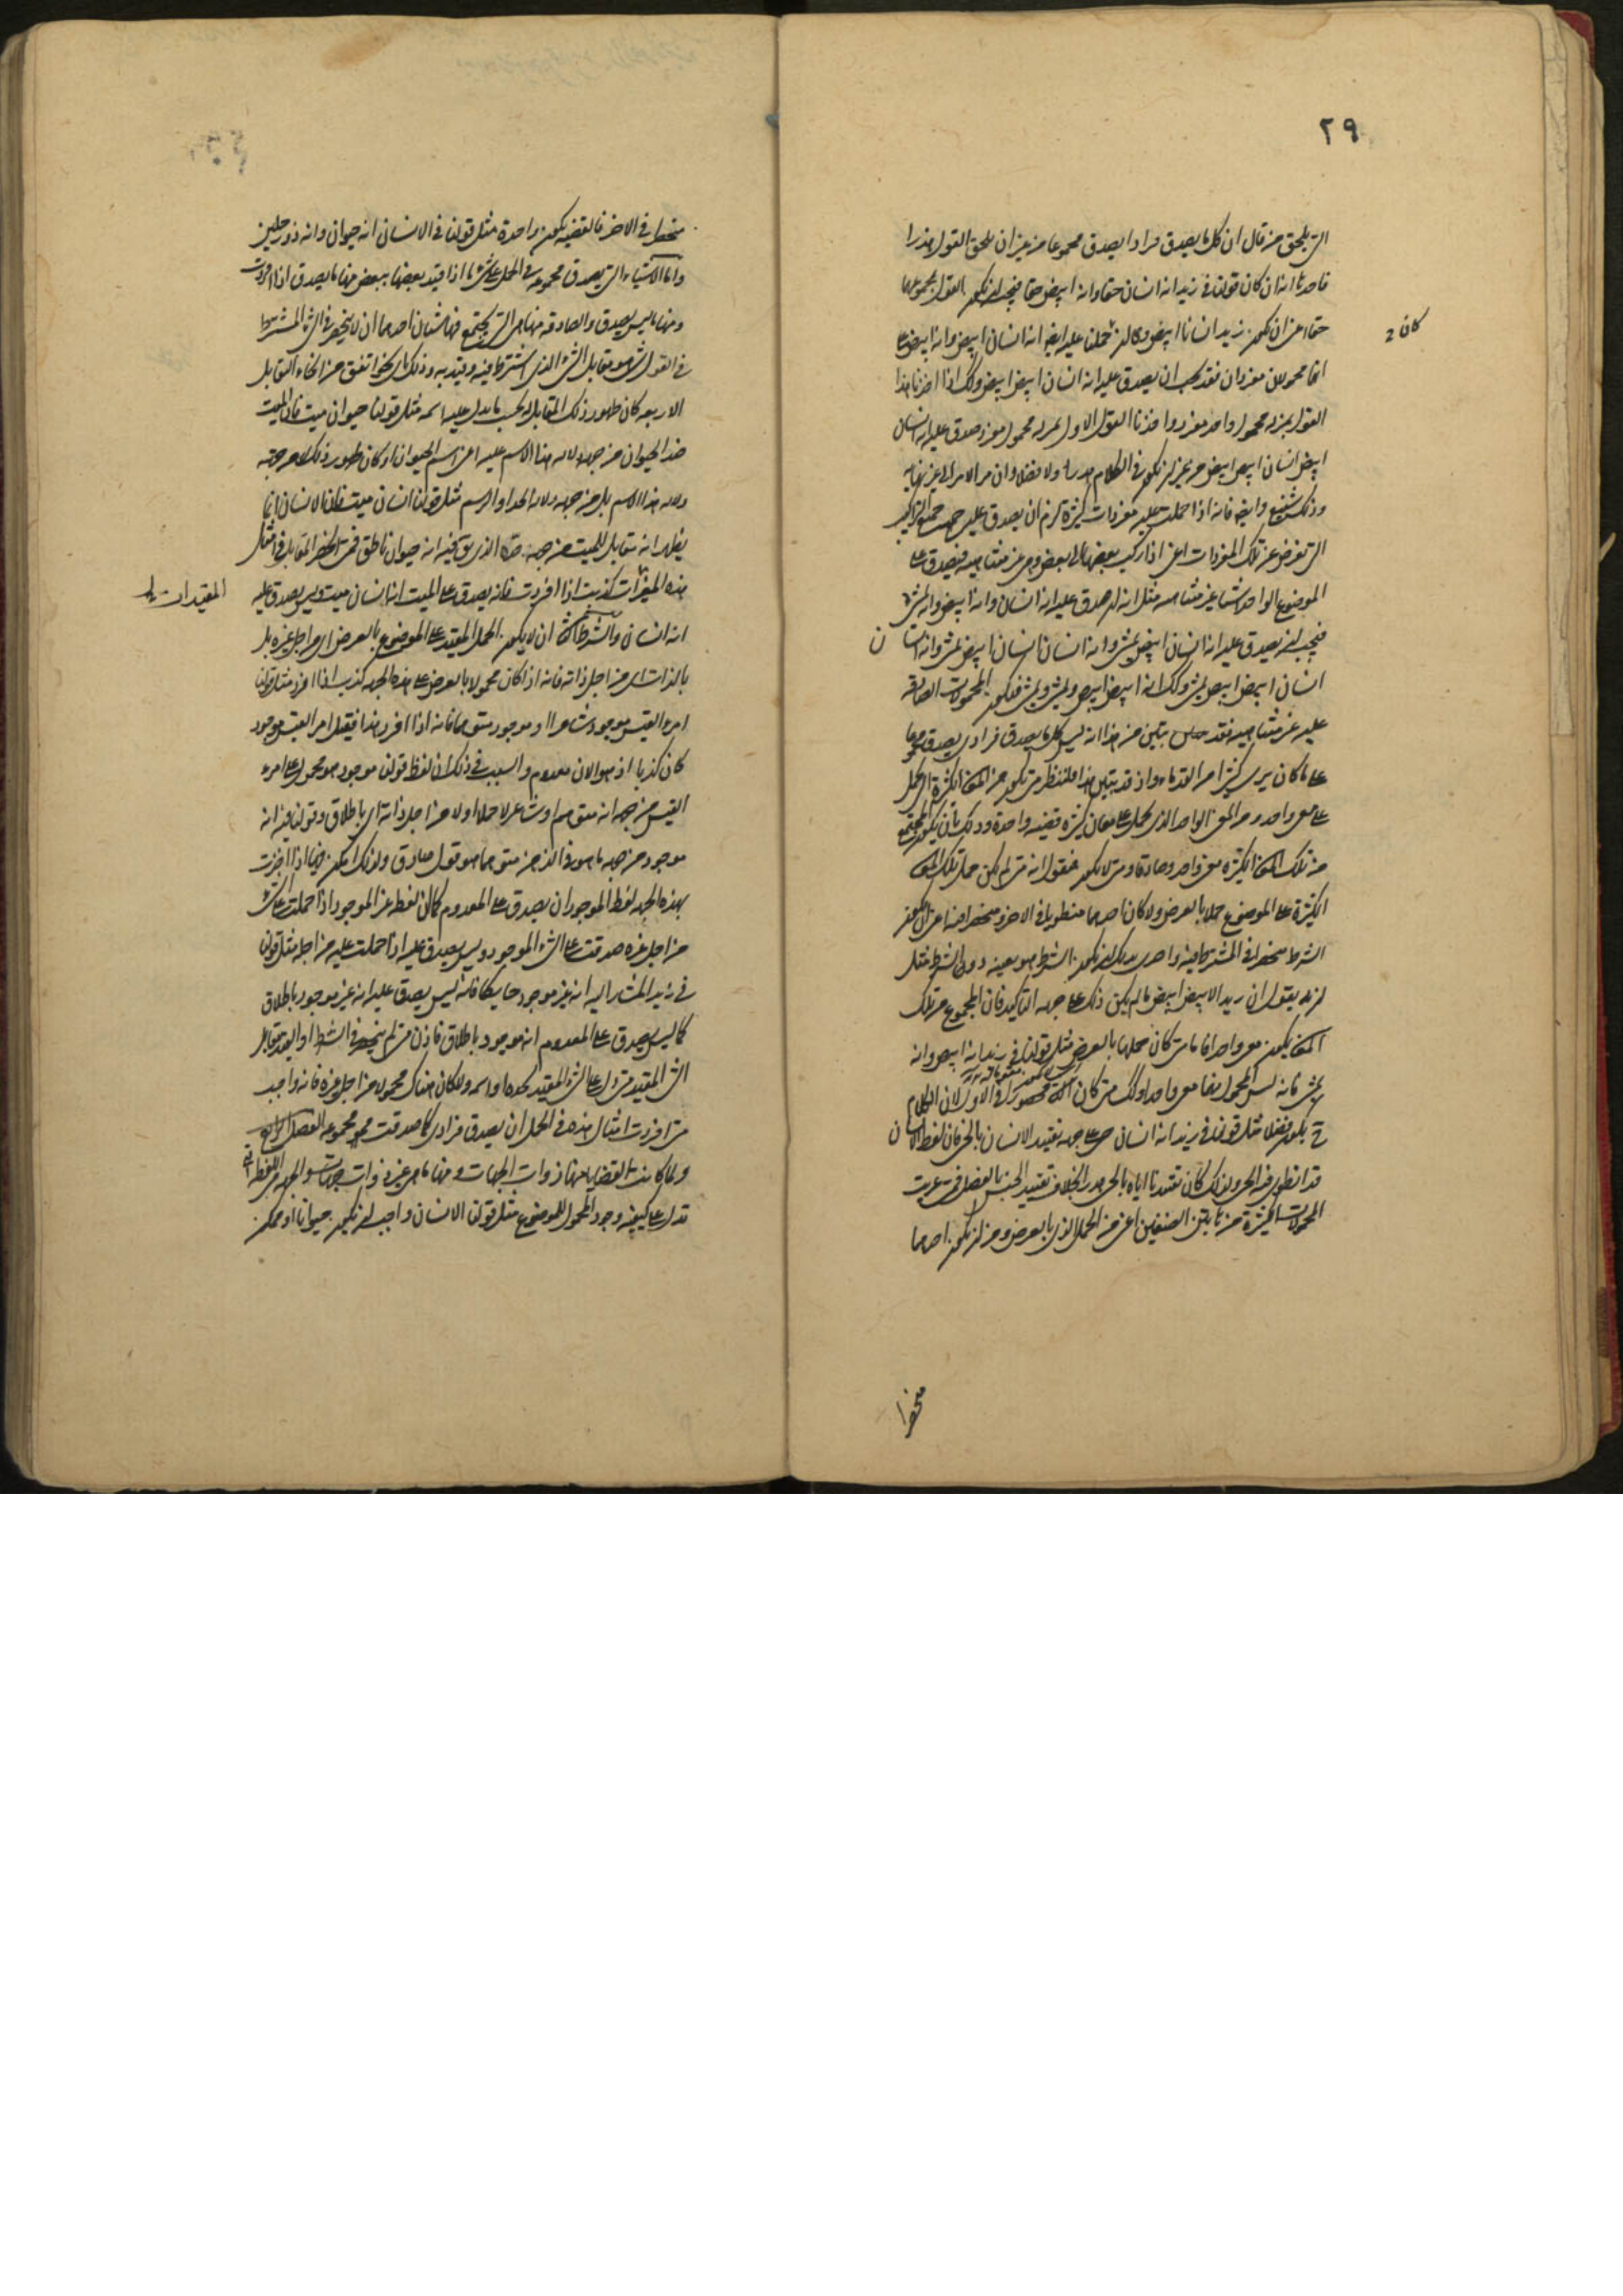 ٢٩
التي تلحق من قال ان كل ما يصدق فرادا يصدق مجموعا من غير ان يلحق القول هذرا
فاحدها انه ان كان قولنا في زيد انه انسان حقا وانه ابيض حقا فيجب ان يكون القول بمجموعهما
حقا اعني ان يكون زيد انسانا ابيض وكان ان حملنا عليه ايضا انه انسان ابيض وانه ابيض على
كان
انهما محمولان مفردان فقد يجب ان يصدق عليه انه انسان ابيض ابيض وكذلك اذا اخذنا هذا
القول بمنزلة محمول واحد مفرد واخذنا القول الاول بمنزلة محمول مفرد صدق عليه انه انسان
ابيض انسان ابيض ابيض من غير ان يكون في الكلام هذرا ولا فضلا وان مر الامر الى غير نهاية
وذلك شنيع وايضا فانه اذا حملت عليه مفردات كثيرة لزم ان يصدق عليه جميع التراكيب
التي تعرض عن تلك المفردات اعني اذا ركب بعضها الى بعض وهي غير متناهية فيصدق على
الموضوع الواحد اشيا غير متناهية مثل انه ان صدق عليه انه انسان وانه ابيض وانه يمشي
فيجب ان يصدق عليه انه انسان ابيض يمشي وانه انسان انسان ابيض يمشي وانه انسان
انسان ابيض ابيض يمشي وكذلك انه ابيض ابيض ويمشي ويمشي فتكون المحمولات الصادقة
عليه غير متناهية فقد تبين من هذا انه ليس كل ما يصدق فرادى يصدق مجموعا
على ما كان يرى كثير من القدماء واذ قد تبين هذا فلننظر متى تكون من المعاني الكثيرة التي تحمل
على معنى واحد ومن المعنى الواحد الذي يحمل على معان كثيرة قضية واحدة وذلك بأن يكون المجتمع
من تلك المعاني الكثيرة معنى واحد وصادقا ومتى لا يكون فنقول انه متى لم يكن حمل تلك المعاني
الكثيرة على الموضوع حملا بالعرض ولا كان احدهما منطويا في الاخر ومنحصرا فيه اعني ان يكون
الشرط منحصرا في المشترط فيه واحدى ذلك ان يكون الشرط هو بعينه دون الشرط مثل
ان يقول ان زيد الابيض ابيض ما لم يكن ذلك على جهة التأكيد فان المجموع من تلك
المعاني يكون معنى واحدا فاما متى كان حملها بالعرض مثل قولنا في زيد انه ابيض وانه
يمشي فانه ليس المحمول فيهما معنى واحدا وكذلك متى كان الثاني محصورا في الاول لان الكلام
ح يكون فضلا مثل قولنا في زيد انه انسان حي على جهة تقييد الانسان بالحي فان لفظ الانسان
قد انطوى فيه الحي ولذلك كان تقييدنا اياه بالحي هذرا بخلاف تقييد الجنس بالفصل فمتى عريت
المحمولات الكثيرة من هاتين الصنفين اعني من الحمل الذي بالعرض ومن ان يكون احدهما
منحصرا
منحصرا في الاخر فالقضية تكون واحدة مثل قولنا في الانسان انه حيوان وانه ذو رجلين
واما الاشياء التي يصدق مجموعه في الحمل على شيء ما اذا قيد بعضها ببعض منها ما يصدق اذا افردت
ومنها ما ليس يصدق والصادقة منها هي التي يجتمع فيها شيئان احدهما ان لا ينحصر في الشيء المشترط
في القول شيء هو مقابل الشيء الذي اشترط فيه وقيد به وذلك باي نحو اتفق من انحاء التقابل
الاربعه كان ظهور ذلك المقابل له بحسب ما يدل عليه اسمه مثل قولنا حيوان ميت فان الميت
ضد الحيوان من جهة دلالة هذا الاسم عليه اعني اسم الحيوان او كان ظهور ذلك لا من جهة
دلالة هذا الاسم بل من جهة دلالة الحد او الرسم مثل قولنا انسان ميت فان الانسان انما
يظهر انه مقابل للميت من جهة حده الذي يقال فيه انه حيوان ناطق فمتى انحصر المتقابل في مثل
هذه المقيدات كذبت اذا افردت فانه يصدق على الميت انه انسان ميت وليس يصدق عليه
المقيدات
انه انسان والشرط الثاني ان لا يكون المحمول المقيد على الموضوع بالعرض اي من اجل غيره بل
بالذات اي من اجل ذاته فانه اذا كان محمولا بالعرض على هذه الجهة كذب اذا افرد مثل قولنا
امرء القيس موجود شاعرا او موجود متوهما فانه اذا افرد هذا فقيل امرء القيس موجود
كان كذبا اذ هو الان معدوم والسبب في ذلك ان لفظ قولنا موجود هو محمول على امرء
القيس من جهة انه متوهم او شاعر لا حملا اولا من اجل ذاته اي باطلاق وقولنا فيه انه
موجود من جهة ما هو في الذهن متوهما هو قول صادق ولذلك لم يكن خطا اذا اخذت
بهذه الجهة لفظ الموجود ان يصدق على المعدوم كما ان لفظة غير الموجود اذا حملت على شيء
من اجل غيره صدقت على الشيء الموجود وليس يصدق عليه اذا حملت عليه من اجله مثل قولنا
في زيد المشار اليه انه غير موجود حايكا فانه ليس يصدق عليه انه غير موجود باطلاق
كما ليس يصدق على المعدوم انه موجود باطلاق فاذن متى لم ينحصر في الشرط او القيد مقابل
الشيء المقيد متى دل على الشيء المقيد بحده او اسمه ولا كان هناك محمولا من اجل غيره فانه واجب
متى افردت امثال هذه في الحمل ان يصدق فرادى كما صدقت مجموعة الفصل الرابع
ولما كانت القضايا منها ذوات الجهات ومنها ما هي غير ذوات جهات والجهة هي اللفظة التي
تدل على كيفية وجود المحمول للموضوع مثل قولنا الانسان واجب ان يكون حيوانا او ممكن